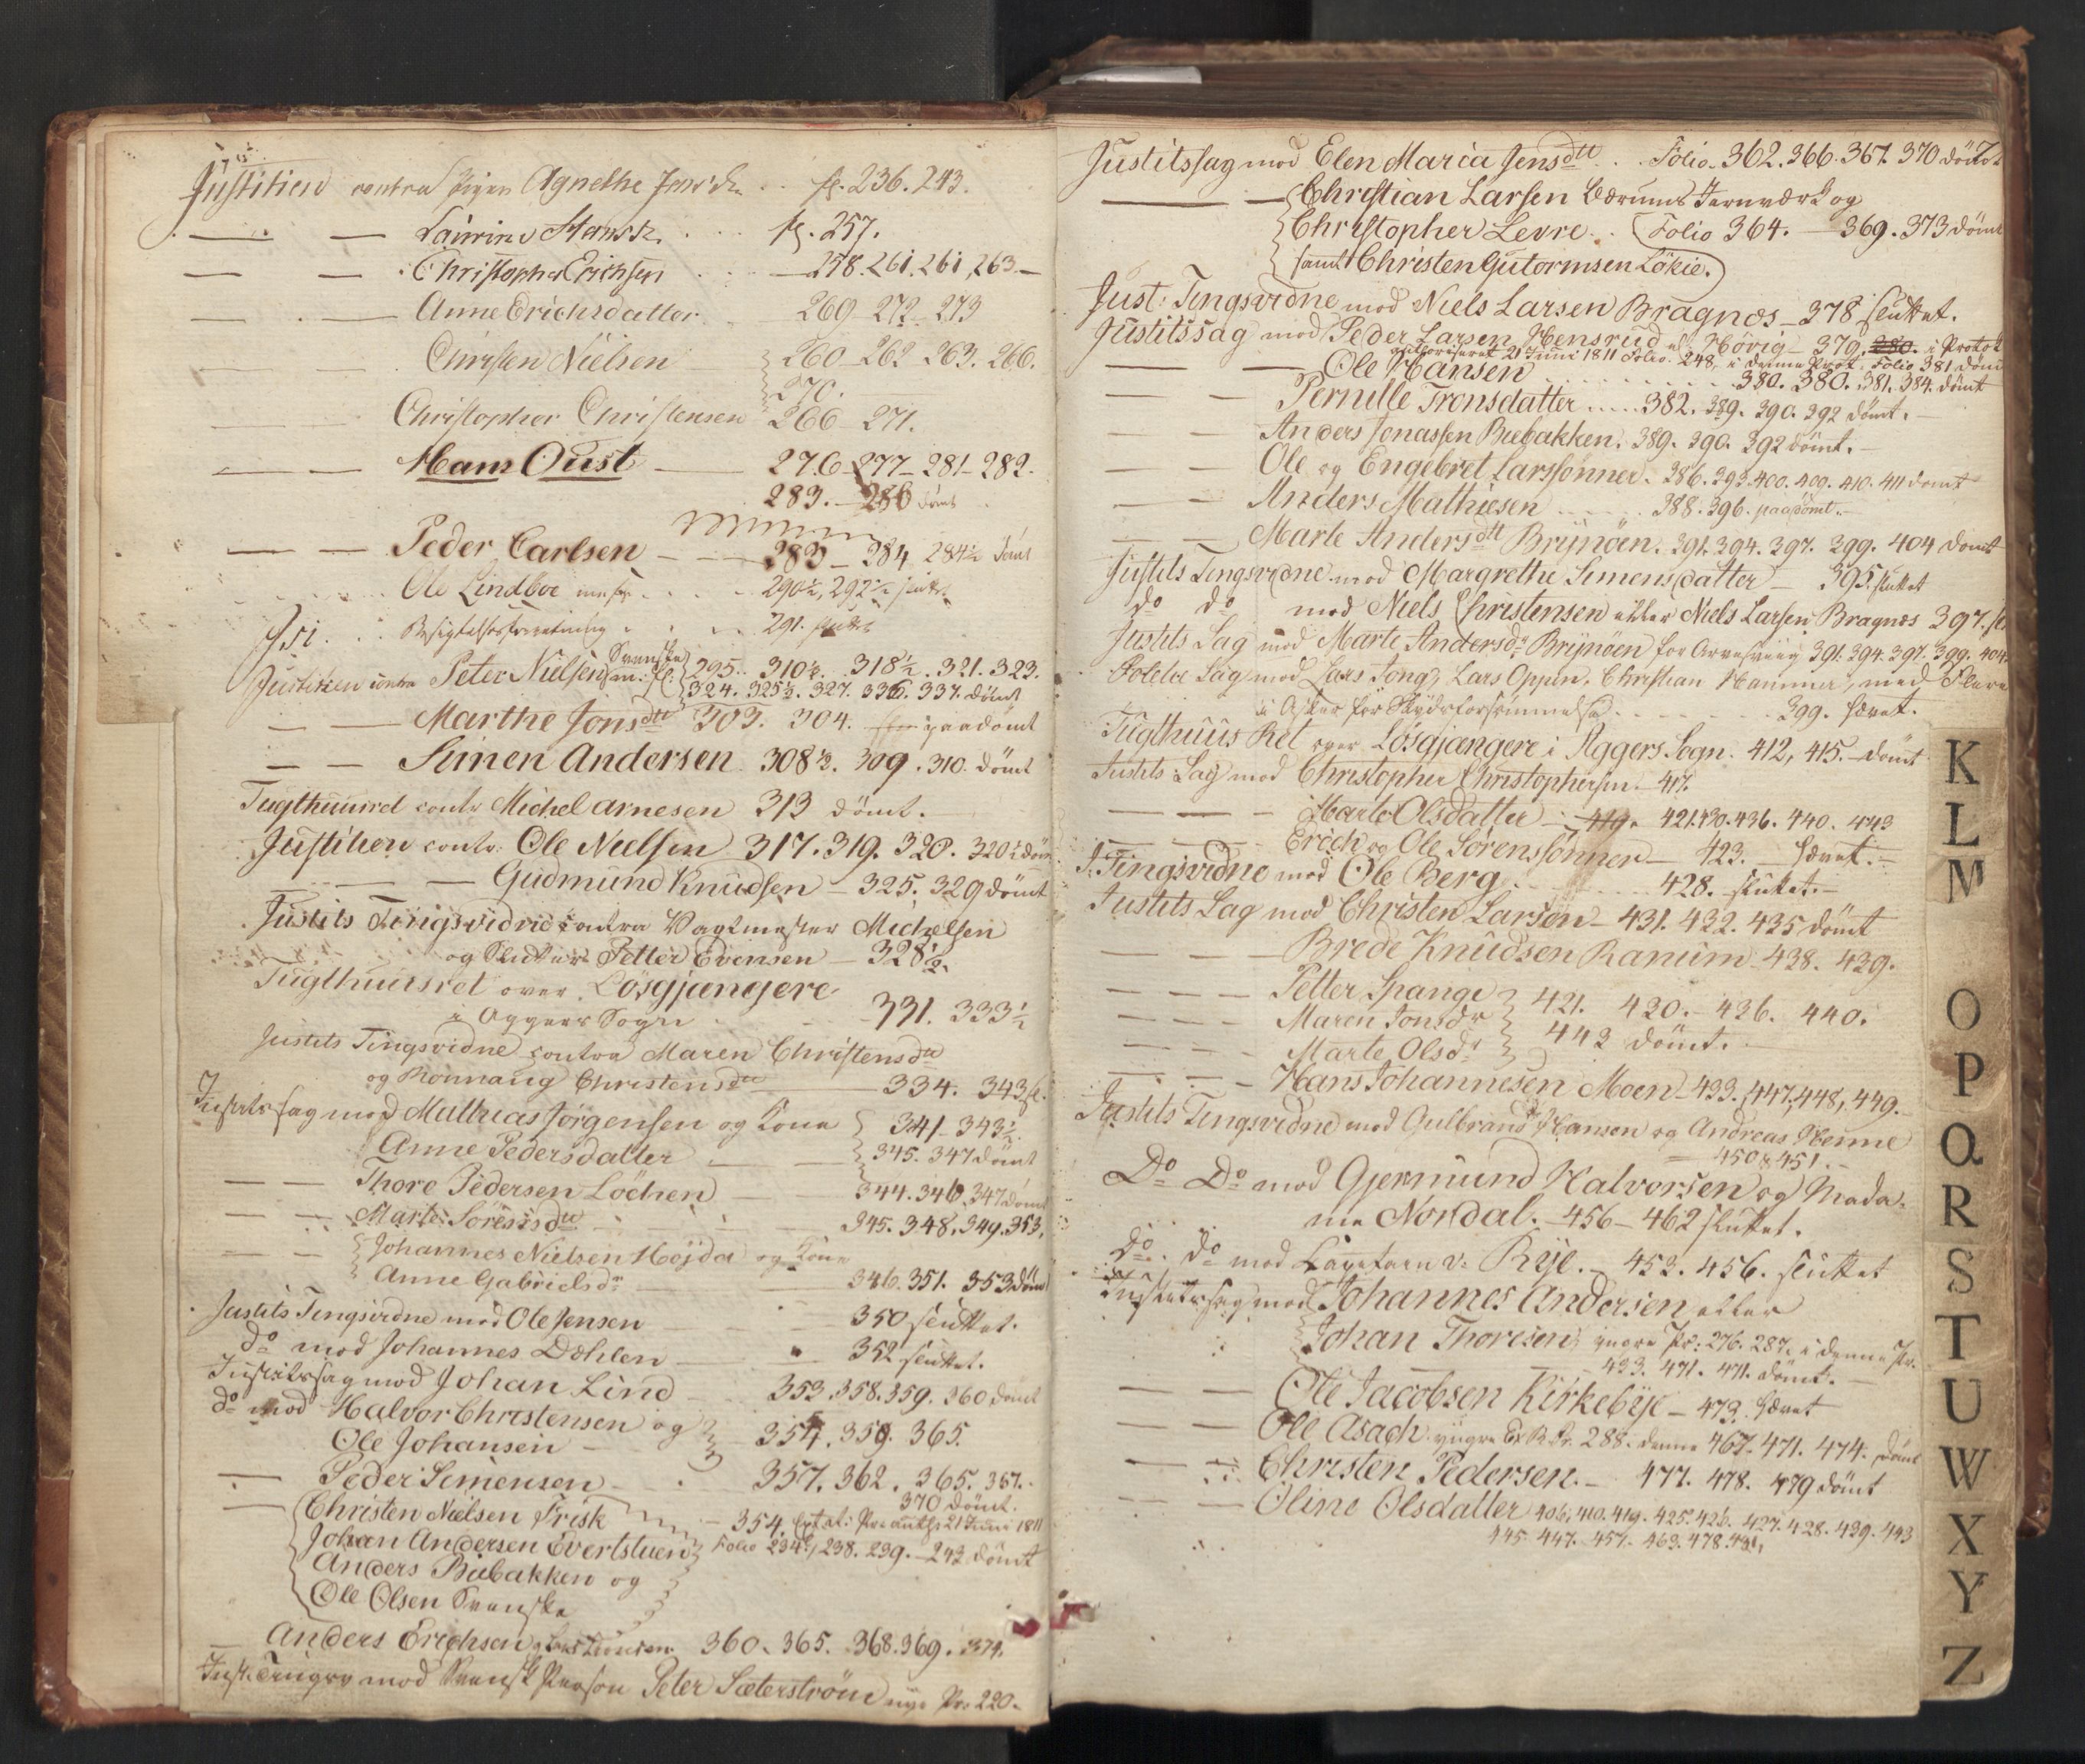 Justitien contra Pigen Agnethe Jensdr. fl. 236. 243.
— — fl. 257.
— — Christopher Erichsen — 258. 261. 261. 263. —
— — Anne Erichsdatter 269 – 272 – 273
— — Christen Nielsen 260 – 262 – 263. 266.
270.
— — Christopher Christensen 266 – 271.
— — Hans Oust — 276 – 277 – 281 – 282.
283. – 286 dömt
— — Peder Carlsen — 283 – 284 284½ dömt
Ole Lindboe 290½, 292½ sluttet
Besigtelsesforretning 291. sluttet
Justitien contra Peter Nielsen Svenske fl: 295. 310½. 318½. 321. 323.
324. 325½. 327. 336. 337. dömt
— — Marthe Jonsdtr 303. 304. paadömt
— — Simen Andersen 308½. 309. 310 dömt
Tugthuusret contr Michel Arnesen 313 dömt.
Justitien contr: Ole Nielsen 317. 319. 320. 320½ döm
— — Gudmund Knudsen — 325. 329 dömt
Justits Tingsvidne contra Vagtmester Michelsen
og Slutter Petter Evensen — 328½.
Tugthuusret over Lösgjængere
i Aggers Sogn — 331. 333½
Justits Tingsvidne contra Maren Christensdtr
og Rönnaug Christensdtr — 334. 343 sl.
Justitssag mod Mathias Jörgensen og Kone } 341 – 343½.
Anne Pedersdatter — 345. 347 dömt
— — Thore Pedersen Löchen — 344. 346. 347 dömt
— — Marte Sörensdtr — 345. 348. 349. 353,
— — { Johannes Nielsen Höjda og Kone
Anne Gabrielsdr — 346. 351. 353 dömt
Justits Tingsvidne mod Ole Jensen — 350 sluttet.
do mod Johannes Dæhlen — 352 sluttet.
Justitssag mod Johan Lind — 353. 358. 359. 360 dömt
do mod Halvor Christensen og
Ole Johansen — } 354. 359. 365.
— Peder Simensen — 357. 362. 365. 367.
370 dömt.
— { Christen Nielsen Frisk — 354. Extat: Pr. auth: 21 Juni 1811
Johan Andersen Evertstuen Folio 234, 238. 239. – 243 dömt
Anders Biebakken og
Ole Olsen Svenske
— Anders Erichsen 360. 365. 368. 369. 374.
Just. Tingsv mod Svensk Person Peter Sæterström nye Pr. 220.
Justitssag mod Elen Maria Jensdtr . . Folio. 362. 366. 367. 370 dömt
— — { Christian Larsen Bærums Jernværk og
Christopher Levre . . Folio 364. — 369. 373 dömt
samt Christen Gutormsen Lökie.
Just: Tingsvidne mod Niels Larsen Bragnæs — 378 sluttet.
Justitssag mod Peder Larsen Hensrud el. Hövig — 379. 380. i Protok
authoriseret 21 Juni 1811 Folio. 248, i denne Prot. Folio 381 döm
— — Ole Hansen . . . . 380. 380. 381. 384. dömt
— — Pernille Tronsdatter . . . . 382. 389. 390. 392 dömt.
— — Anders Jonassen Biebakken. 389. 390. 392 dömt.
— — Ole og Engebret Larssönner. 386. 393. 400. 409. 410. 411 dömt
— — Anders Mathiesen . . . . 388. 396. paadömt.
— — Marte Andersdtr Brÿnöen. 391. 394. 397. 399. 404 dömt
Justits Tingsvidne mod Margrethe Simensdatter — 395. sluttet
do do mod Niels Christensen eller Niels Larsen Bragnæs 397. sl
Justits Sag mod Marte Andersdr Brÿnöen for 391. 394. 397. 399. 404.
Politie Sag mod Lars Tong, Lars Oppen, Christian Hammer, med Flere
i Asker for Skydsforsömmelse . . . . 399. hævet.
Tugthuus Ret over Lösgjængere i Aggers Sogn. 412, 415. – dömt
Justits Sag mod Christopher Christophersen. – 417.
— — Marte Olsdatter — 419. 421. 430. 436. 440. 443
— — Erich og Ole Sörenssönner — 423. — hævet.
J: Tingsvidne mod Ole Berg . . . . 428. sluttet.
Justits Sag mod Christen Larsen — 431. 432. 435 dömt
— — Brede Knudsen Ranum — 438. 439.
— — Petter Spange } 421. 420. 436. 440.
Maren Jonsdr
— — Marte Olsdr } 443 dömt.
— — Hans Johannesen Moen — 433. 447. 448, 449.
Justits Tingsvidne mod Gulbrand Hansen og Andreas Henne
450 & 451.
Do Do mod Gjermund Halvorsen og Mada-
me Nordal. — 456 – 462 sluttet.
do do mod Capetain v: Rÿe. — 453. 456. sluttet
Justitssag mod Johannes Andersen eller
Johan Thoresen, yngre Pr: 276. 287. i denne Pr.
433. 471. 471. dömt.
— — Ole Jacobsen Kirkebÿe — 473. hævet
— — Ole Asach yngre Ex R Pr. 288. denne 467. 471. 474. dömt
— — Christen Pedersen. — 477. 478. 479 dömt
— — Oline Olsdatter 406, 410. 419. 425. 426. 427. 428. 439. 443
445. 447. 457. 463. 478. 481,
K
L
M
O
P
Q
R
S
T
U
W
X
Y
Z